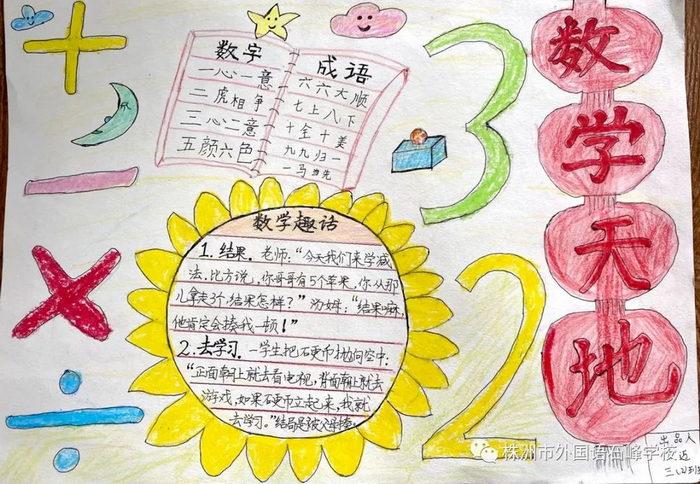 数学天地
数字
一心一意
二虎相争
三心二意
五颜六色
成语
六六大顺
七上八下
十全十美
九九归一
一马当先
+
-
×
÷
3
2
数学趣话
1. 结果. 老师:“今天我们来学减
法.比方说,你哥哥有5个苹果,你从那
儿拿走3个,结果怎样?”汤姆:“结果嘛,
他肯定会揍我一顿!”
2.去学习. 一学生把硬币抛向空中:
“正面朝上就去看电视,背面朝上就去
游戏,如果硬币立起来,我就
去学习.”结局是被父母揍.
株洲市外国语石峰学校
出品人
三(2)班